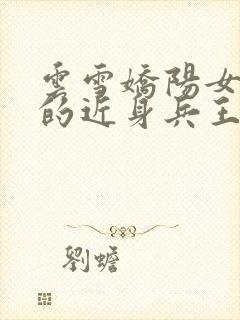 雲雪嬌陽女
的近身兵王
劉蟾